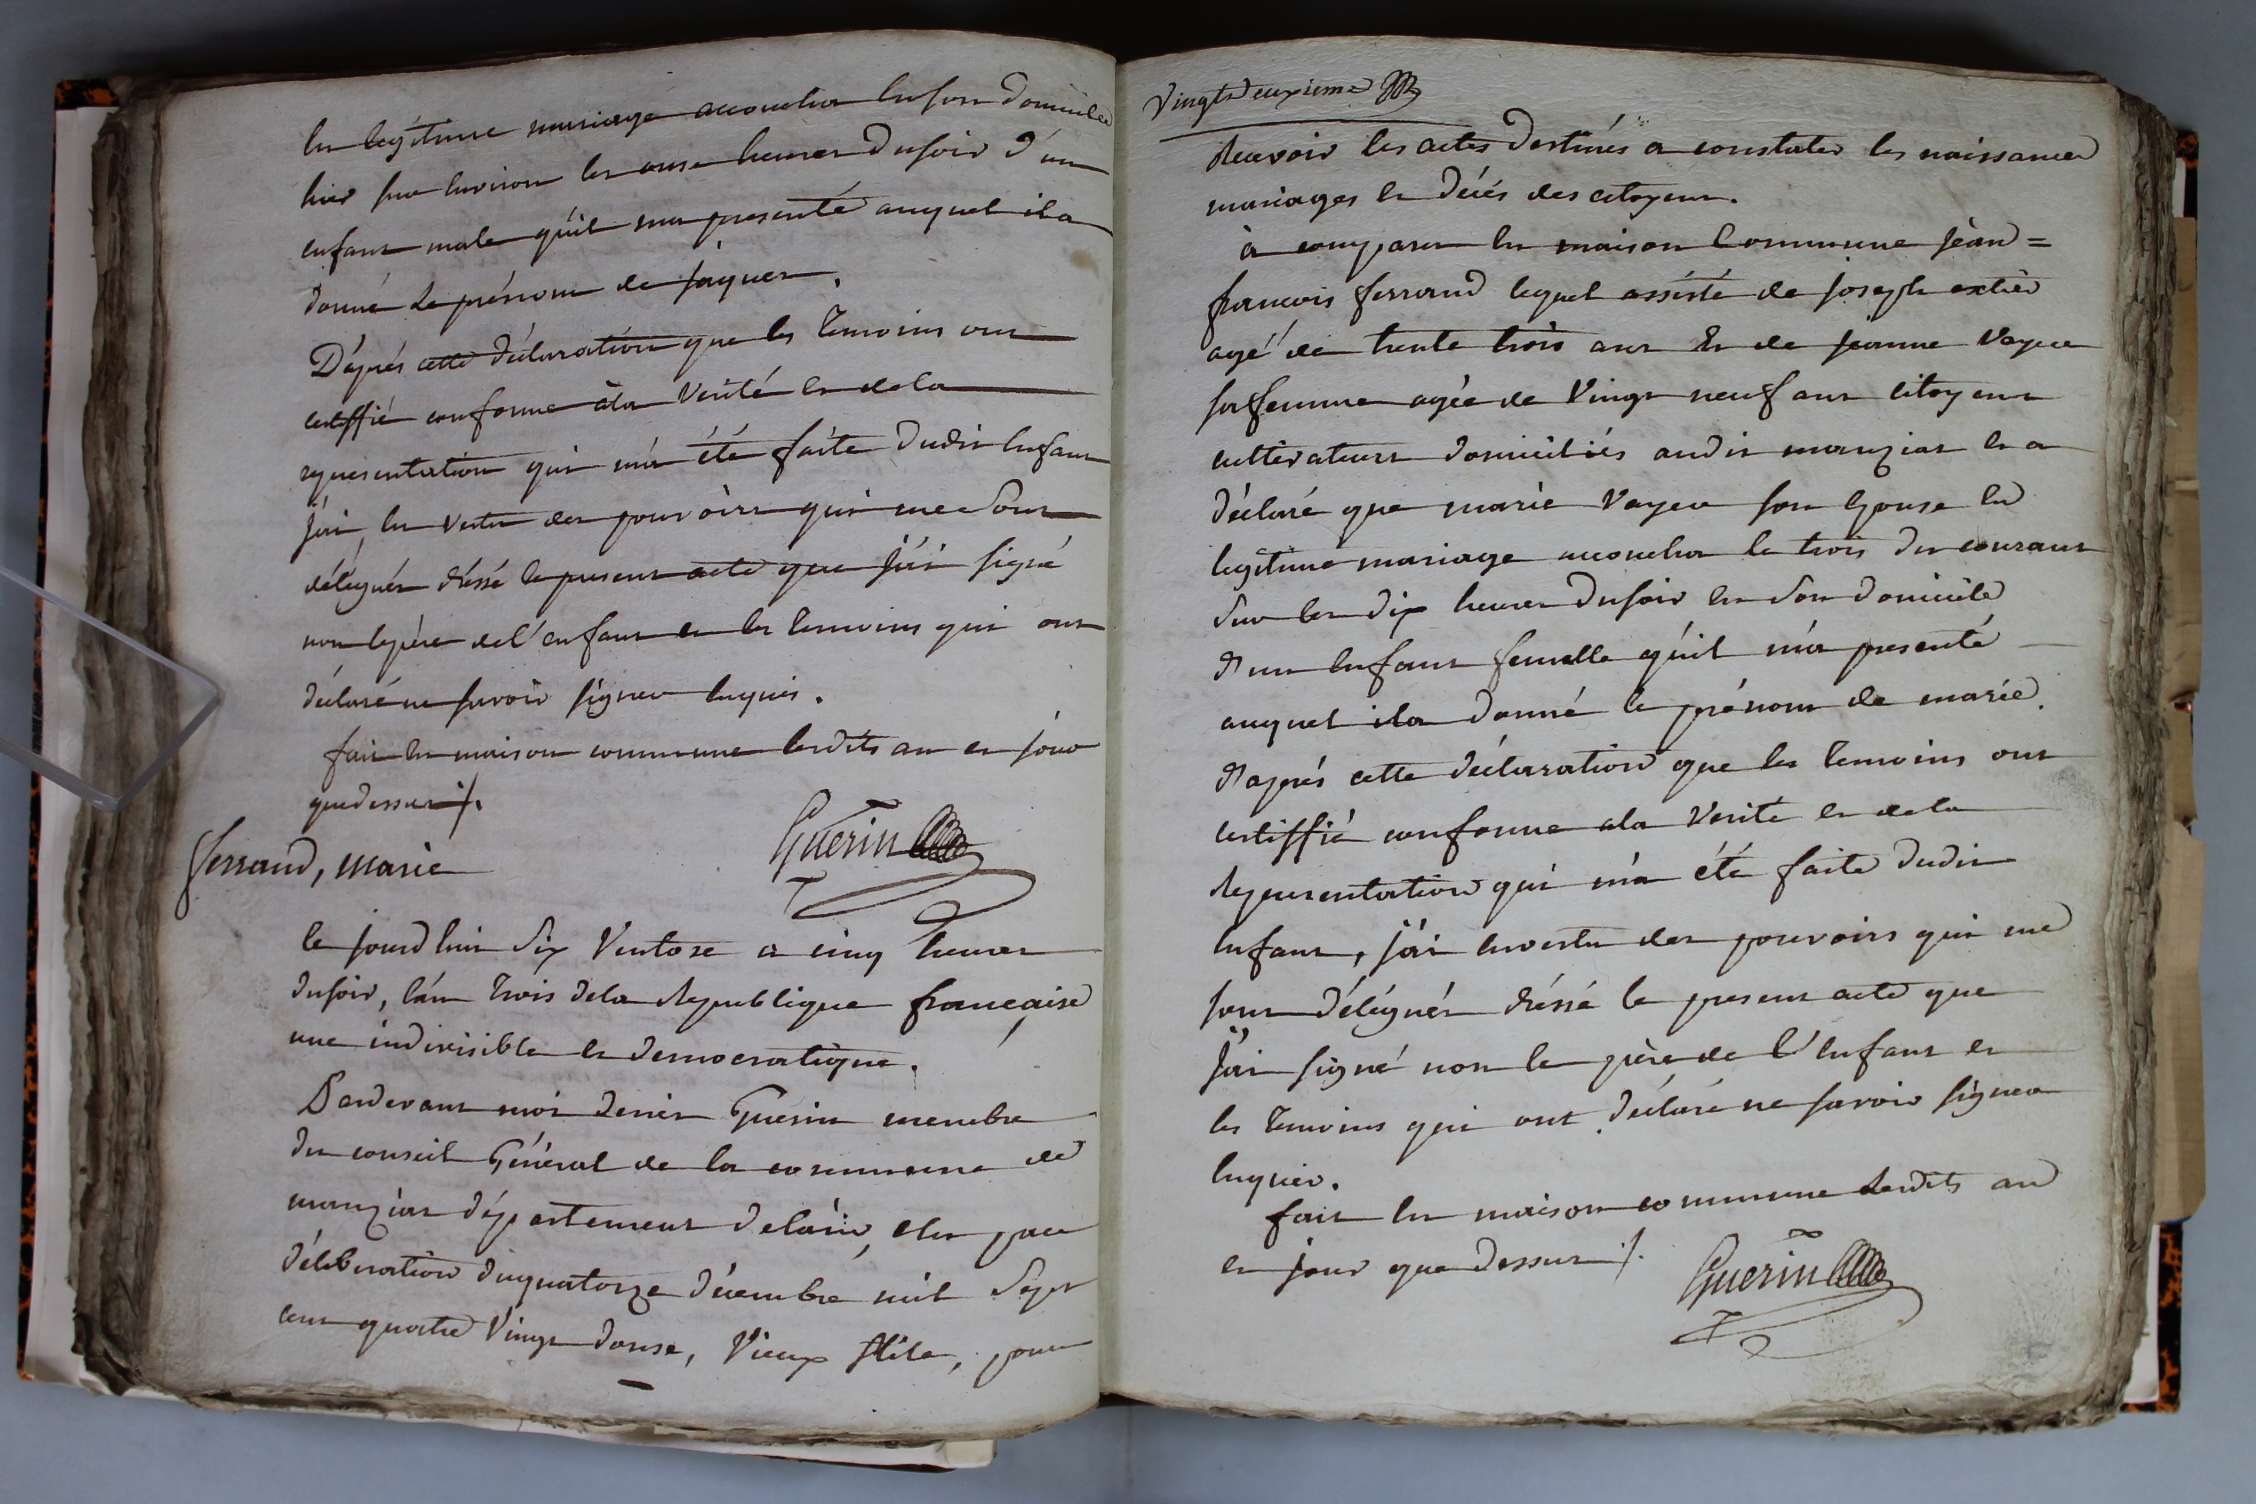 En legitime mariage accoucha En son domicile
hier sur Environ les onse heures du soir d'un
enfant male qu'il ma presenté auquel il a
donné Le prénom de jaques.
D'aprés cette déclaration que les Temoins ont
certiffié conforme àla Verité Et dela
representation qui m'a été faite dudit Enfant
j'ai, En Vertu des pouvoirs qui me Sont
délégués dréssé le present acte que j'ai signé
non le père de l'enfant et les temoins qui ont
déclaré ne savoir signer Enquis.
fait En maison commune Lesdits an et jour
que dessus ./.
Guerin
ferrand, Marie
le jourdhui Six Ventose a cinq heures
du soir, l'an Trois dela Republique française
une indivisible et democratique.
Pardevant moi denis Guerin membre
du conseil Général de la commune de
manziat département delain, Elu par
déliberation du quatorze décembre mil Sept
cent quatre Vingt douse, Vieux stile, pour
Vingtdeuxieme
Recevoir les actes destinés a constater les naissances
mariages Et décés des citoyens.
à comparu En maison Commune jèan=
francois ferrand lequel assisté de joseph
agé de trente trois ans Et de jeanne Vayeu
sa femme agée de Vingt neuf ans citoyens
cultivateurs domiciliés audit manziat Et a
déclaré que marie Vayeu son Epouse En
legitime mariage accoucha le trois du courant
Sur les dix heures du soir En Son domicile
d'un Enfant femelle qu'il m'a presenté
auquel il a donné le prénom de marie.
d'aprés cette déclaration que les temoins ont
certiffié conforme ala Verité Et dela
Representation qui m'a été faite dudit
Enfant, j'ai En vertu des pouvoirs qui me
sont délégués dréssé le present acte que
j'ai signé non le père de l'Enfant et
les Temoins qui ont déclaré ne savoir signer
Enquis.
fait En maison commune Lesdits an
et jour que dessus ./.
Guerin